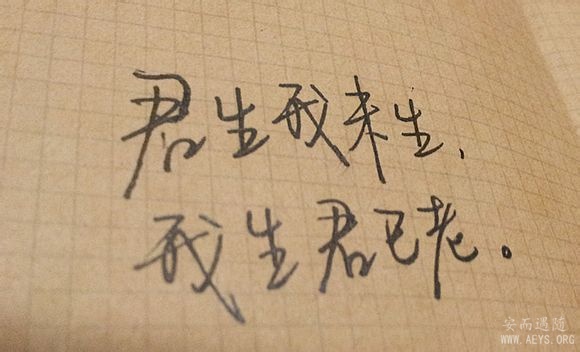 君生我未生,
我生君已老。
安而遇随
WWW.AEYS.ORG